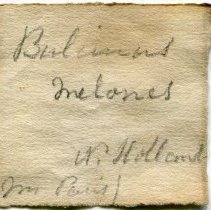 Bulimus
Metones
N. Holland
Paris)